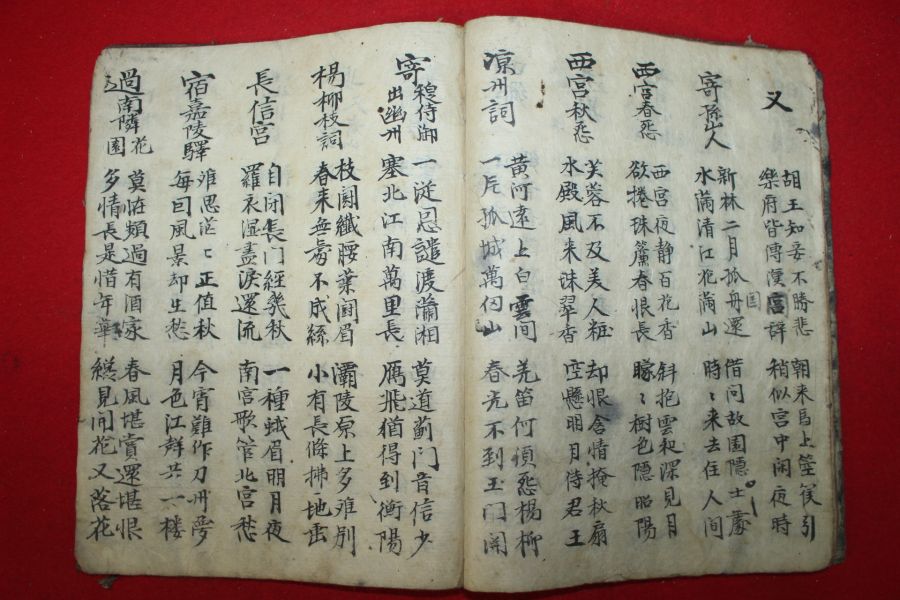 又
胡王知妾不勝悲
樂府皆傳漢宮辞
国
朝来馬上箜篌引
稍似宮中闲夜時
寄孫山人
新林二月孤舟還
水滿清江花滿山
借問故園隱士
時〻来去住人間
西宮春怨
西宮夜静百花香
欲捲珠簾春恨長
斜抱雲和深見月
朦〻樹色隱昭陽
西宮秋怨
芙蓉不及美人粧
水殿風来珠翠香
却恨含情掩秋扇
空懸明月待君王
凉州詞
黄河遠上白雲間
一片孤城萬仞山
羌笛何須怨楊柳
春光不到玉门関
寄穆侍御出幽州
一從恩譴渡瀟湘
塞北江南萬里長
莫道薊门音信少
鴈飛猶得到衡陽
楊柳枝詞
枝鬪纖腰葉鬪眉
春来無處不成絲
灞陵原上多难别
小有長條拂地垂
長信宮
自閉長门經幾秋
羅衣濕盡淚還流
一種蛾眉明月夜
南宮歌管北宮愁
宿嘉陵驛
难思茫〻正值秋
每因風景却生愁
今宵難作刀州夢
月色江聲共一楼
過南隣花園
莫怪頻過有酒家
多情長是惜年華
春風堪賞還堪恨
纔見開花又落花